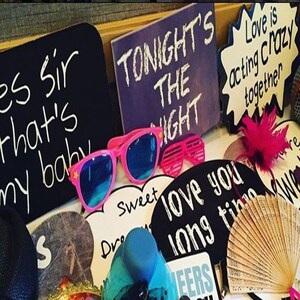 es Sir
that's
my baby
TONIGHT'S
THE
NIGHT
Love is
acting crazy
together
Sweet
Dre
love you
long time
HEERS